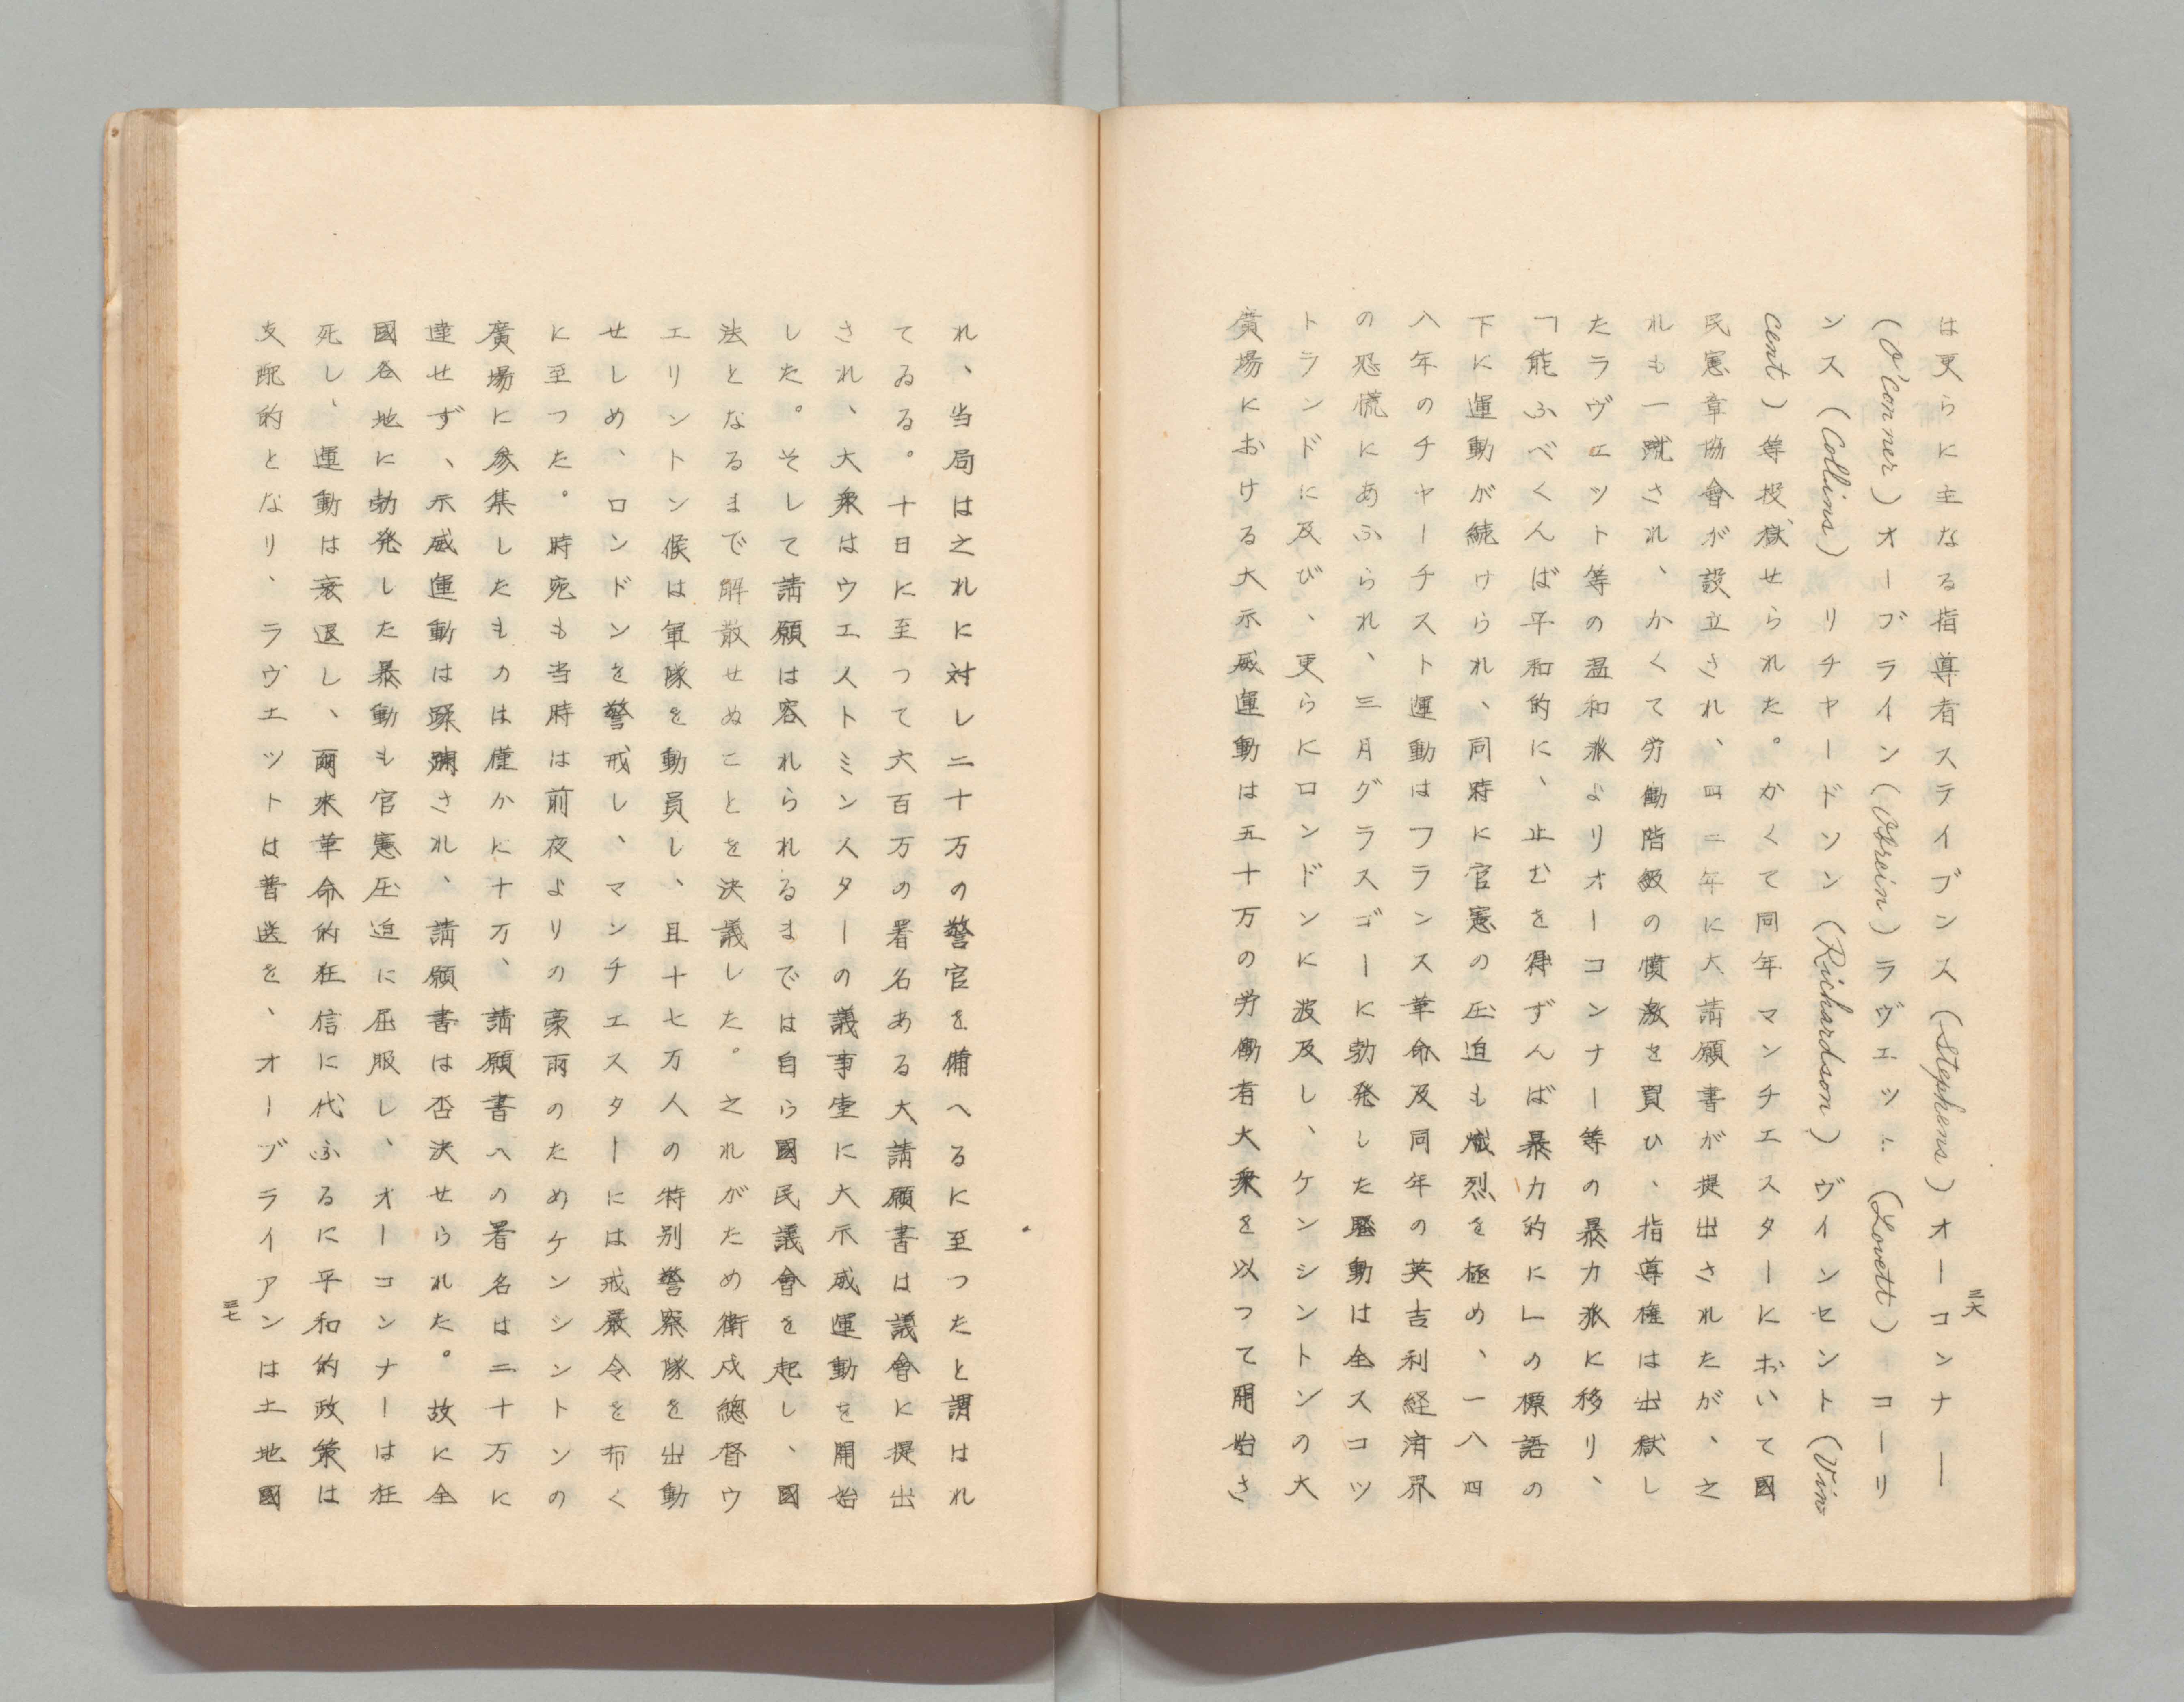 は更らに主なる指導者ステイブンス(Stephens)オーコンナ―
(O'Conner)オーブライン(Obrein)ラヴエツト(Lovett)コーリ
ンス(Collins) リチヤードソン(Richardson)ヴインセント(Vin
cent)等投獄せられた。かくて同年マンチエスターにおいて國
民憲章協會が設立され、四二年に大請願書が提出されたが、之
れも一蹴され、かくて労働階級の憤激を買ひ、指導権は出獄し
たラヴエツト等の温和派よりオーコンナー等の暴力派に移リ、
「能ふべくんば平和的に、止むを得ずんば暴力的に」の標語の
下に運動が続けられ、同時に官憲の圧迫も熾烈を極め、一八四
八年のチヤーチスト運動はフランス革命及同年の英吉利経済界
の恐慌にあふられ、三月グラスゴーに勃発した騒動は全スコツ
トランドに及び、更らにロンドンに波及し、ケンシントンの大
廣場における大示威運動は五十万の労働者大衆を以つて開始さ
三六
れ、当局は之れに対し二十万の警官を備へるに至つたと謂はれ
てゐる。十日に至つて六百万の署名ある大請願書は議會に提出
され、大衆はウエストミンスターの議事堂に大示威運動を開始
した。そして請願は容れられるまでは自ら國民議會を起し、國
法となるまで解散せぬことを決議した。之れがため衛戍總督ウ
エリントン候は軍隊を動員し、且十七万人の特別警察隊を出動
せしめ、ロンドンを警戒し、マンチエスターには戒厳令を布く
に至つた。時宛も当時は前夜よりの豪雨のためケンシントンの
廣場に参集したものは僅かに十万、請願書への署名は二十万に
達せず、示威運動は蹂躙され、請願書は否決せられた。故に全
國各地に勃発した暴動も官憲圧迫に屈服し、オーコンナーは狂
死し、運動は衰退し、爾來革命的狂信に代ふるに平和的政策は
支配的となり、ラヴエツトは普選を、オーブライアンは土地國
三七